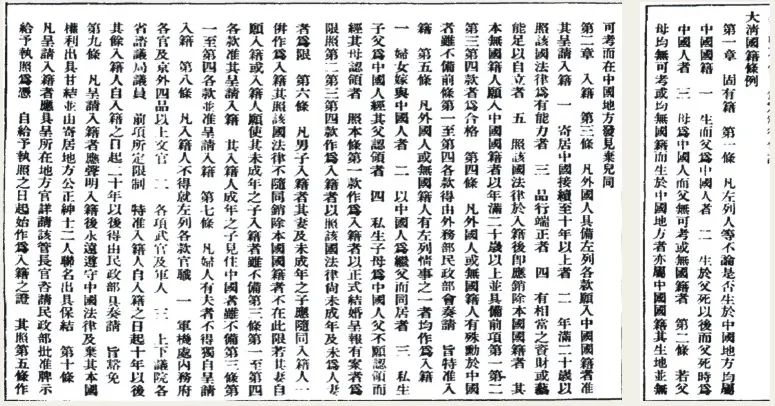 大淸國籍條例
第一章　固有籍　第一條　凡左列人等不論是否生於中國地方均屬
中國國籍　一　生而父爲中國人者　二　生於父死以後而父死時爲
中國人者　三　母爲中國人而父無可考或無國籍者　第二條　若父
母均無可考或均無國籍而生於中國地方者亦屬中國國籍其生地並無
可考而在中國地方發見棄兒同
第二章　入籍　第三條　凡外國人具備左列各款願入中國國籍者准
其呈請入籍　一　寄居中國接續至十年以上者　二　年滿二十歲以
照該國法律爲有能力者　三　品行端正者　四　有相當之資財或藝
能足以自立者　五　照該國法律於入籍後卽應銷除本國國籍者　其
本無國籍人願入中國國籍者以年滿二十歲以上並具備前項第一第二
第三第四款者爲合格　第四條　凡外國人或無國籍人有殊勳於中國
者雖不備前條第一至第四各款得由外務部民政部會奏請　旨特准入
籍　第五條　凡外國人或無國籍人有左列情事之一者均作爲入籍
一　婦女嫁與中國人者　二　以中國人爲繼父而同居者　三　私生
子父爲中國人經其父認領者　四　私生子母爲中國人父不願認領而
經其母認領者　照本條第一款作爲入籍者以正式結婚呈報有案者爲
限照第二第三第四款作爲入籍者以照該國法律尙未成年及未爲人妻
者爲限　第六條　凡男子入籍者其妻及未成年之子應隨同入籍人一
併作爲入籍其照該國法律不隨同銷除本國國籍者不在此限若其妻自
願入籍或入籍人願使其未成年之子入籍者雖不備第三條第一至第四
各款准其呈請入籍　其入籍人成年之子見住中國者雖不備第三條第
一至第四各款並准呈請入籍　第七條　凡婦人有夫者不得獨自呈請
入籍　第八條　凡入籍人不得就左列各款官職　一　軍機處內務府
各官及京外四品以上文官　二　各項武官及軍人　三　上下議院各
省諮議局議員　前項所定限制　特准入籍人自入籍之日起十年以後
其餘入籍人自入籍之日起二十年以後得由民政部具奏請　旨豁免
第九條　凡呈請入籍者應聲明入籍後永遠遵守中國法律及棄其本國
權利出具甘結並由寄居地方公正紳士二人聯名出具保結　第十條
凡呈請入籍者應具呈所在地方官詳請該管長官咨請民政部批准牌示
給予執照爲憑　自給予執照之日起始作爲入籍之證　其照第五條作